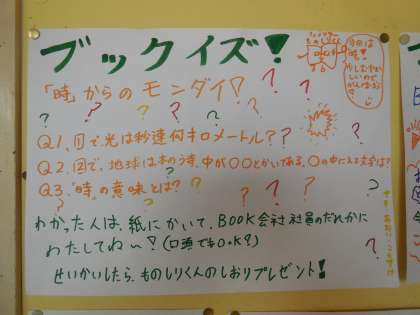 ブッククイズ!
「時」からのモンダイ!
今回は
時!
少しむずかしいのでがんばってネ
Q1、①で光は秒速何キロメートル??
Q2、②で、地球は本の時、中が〇〇とかいてある、〇の中に入る文字は?
Q3、「時」の意味とは?
わかった人は、紙にかいて、BOOK会社社員のだれかに
わたしてねー!(口頭でもO.K?)
せいかいしたら、ものしりくんのしおりプレゼント!